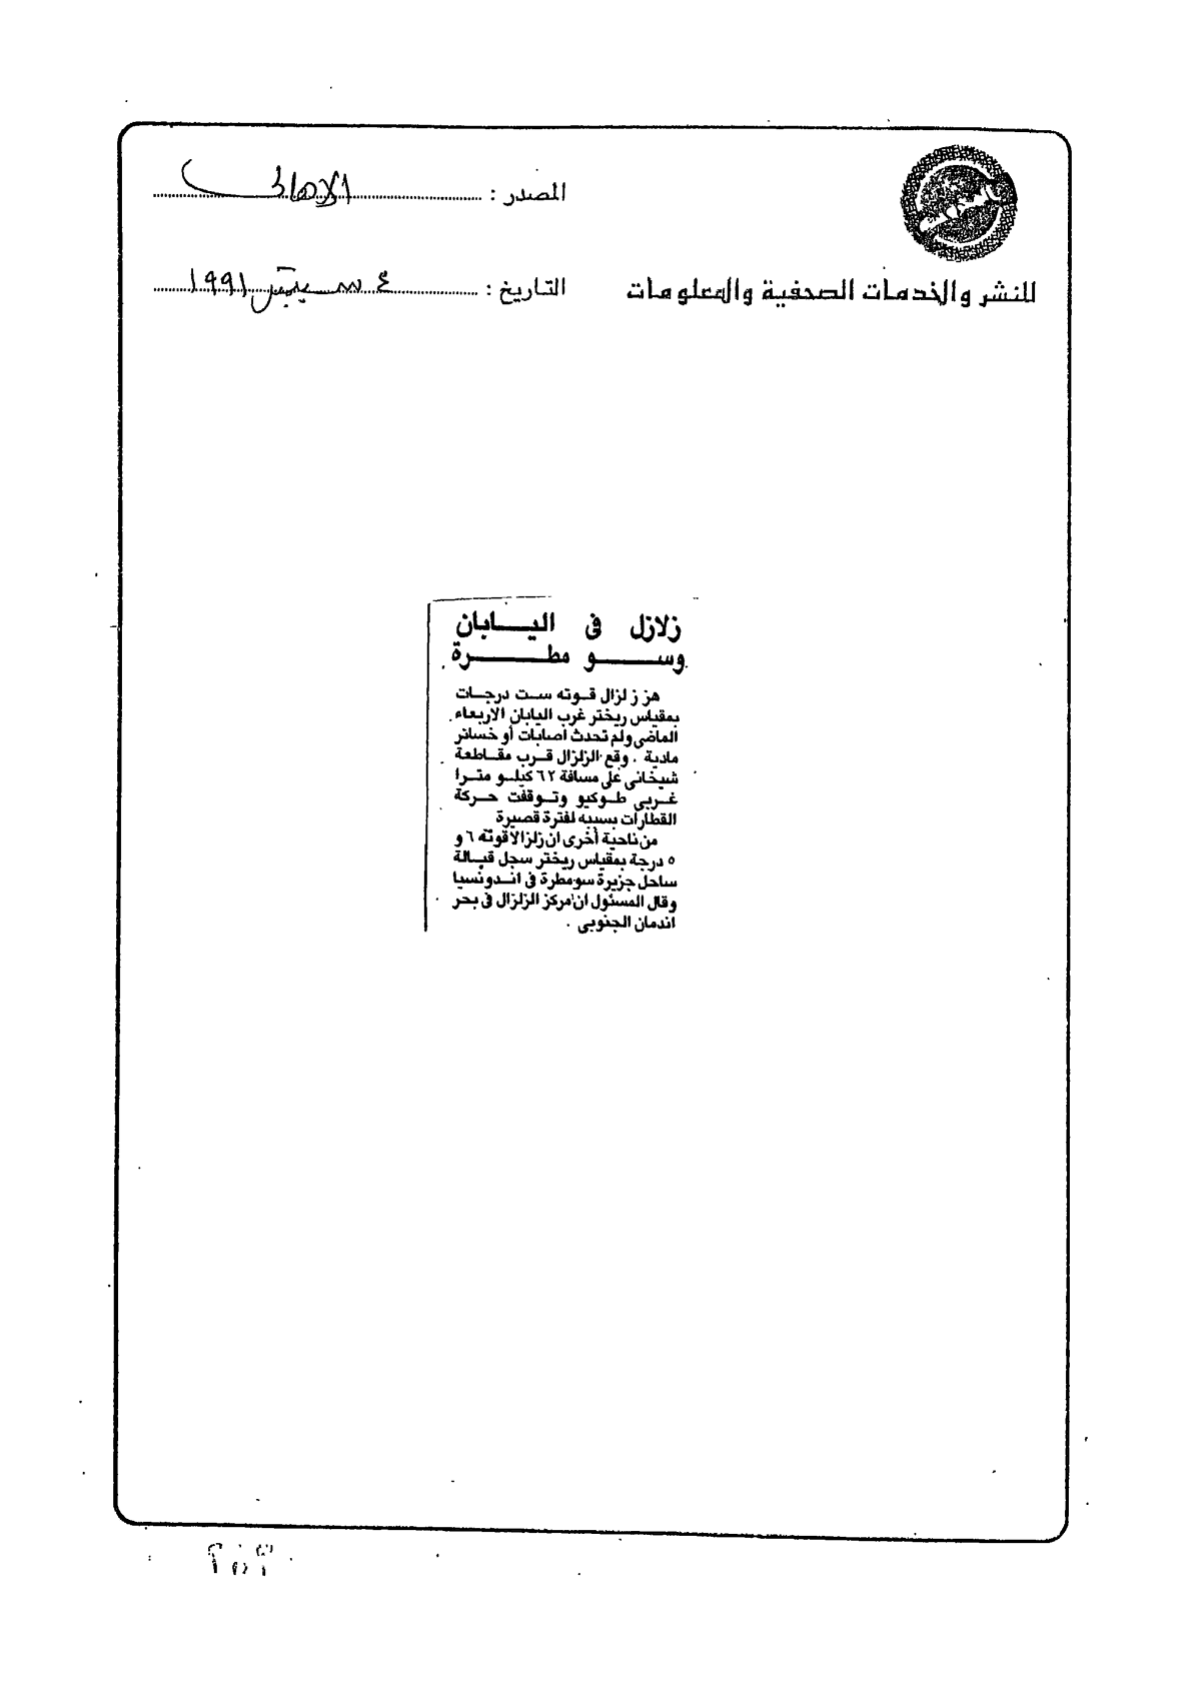 المصدر : الاهالى
للنشر والخدمات الصحفية والمعلومات
التاريخ : ٤ سبتمبر ١٩٩١
زلازل فى اليـــابان
وســـو مطـــرة
هز زلزال قوته ست درجات
بمقياس ريختر غرب اليابان الاربعاء
الماضى ولم تحدث اصابات أو خسائر
مادية . وقع الزلزال قرب مقاطعة
شيخانى على مسافة ٦٢ كيلو مترا
غربى طوكيو وتوقفت حركة
القطارات بسببه لفترة قصيرة
من ناحية أخرى ان زلزالا قوته ٦ و
٥ درجة بمقياس ريختر سجل قبالة
ساحل جزيرة سومطرة فى اندونسيا
وقال المسئول ان مركز الزلزال فى بحر
اندمان الجنوبى .